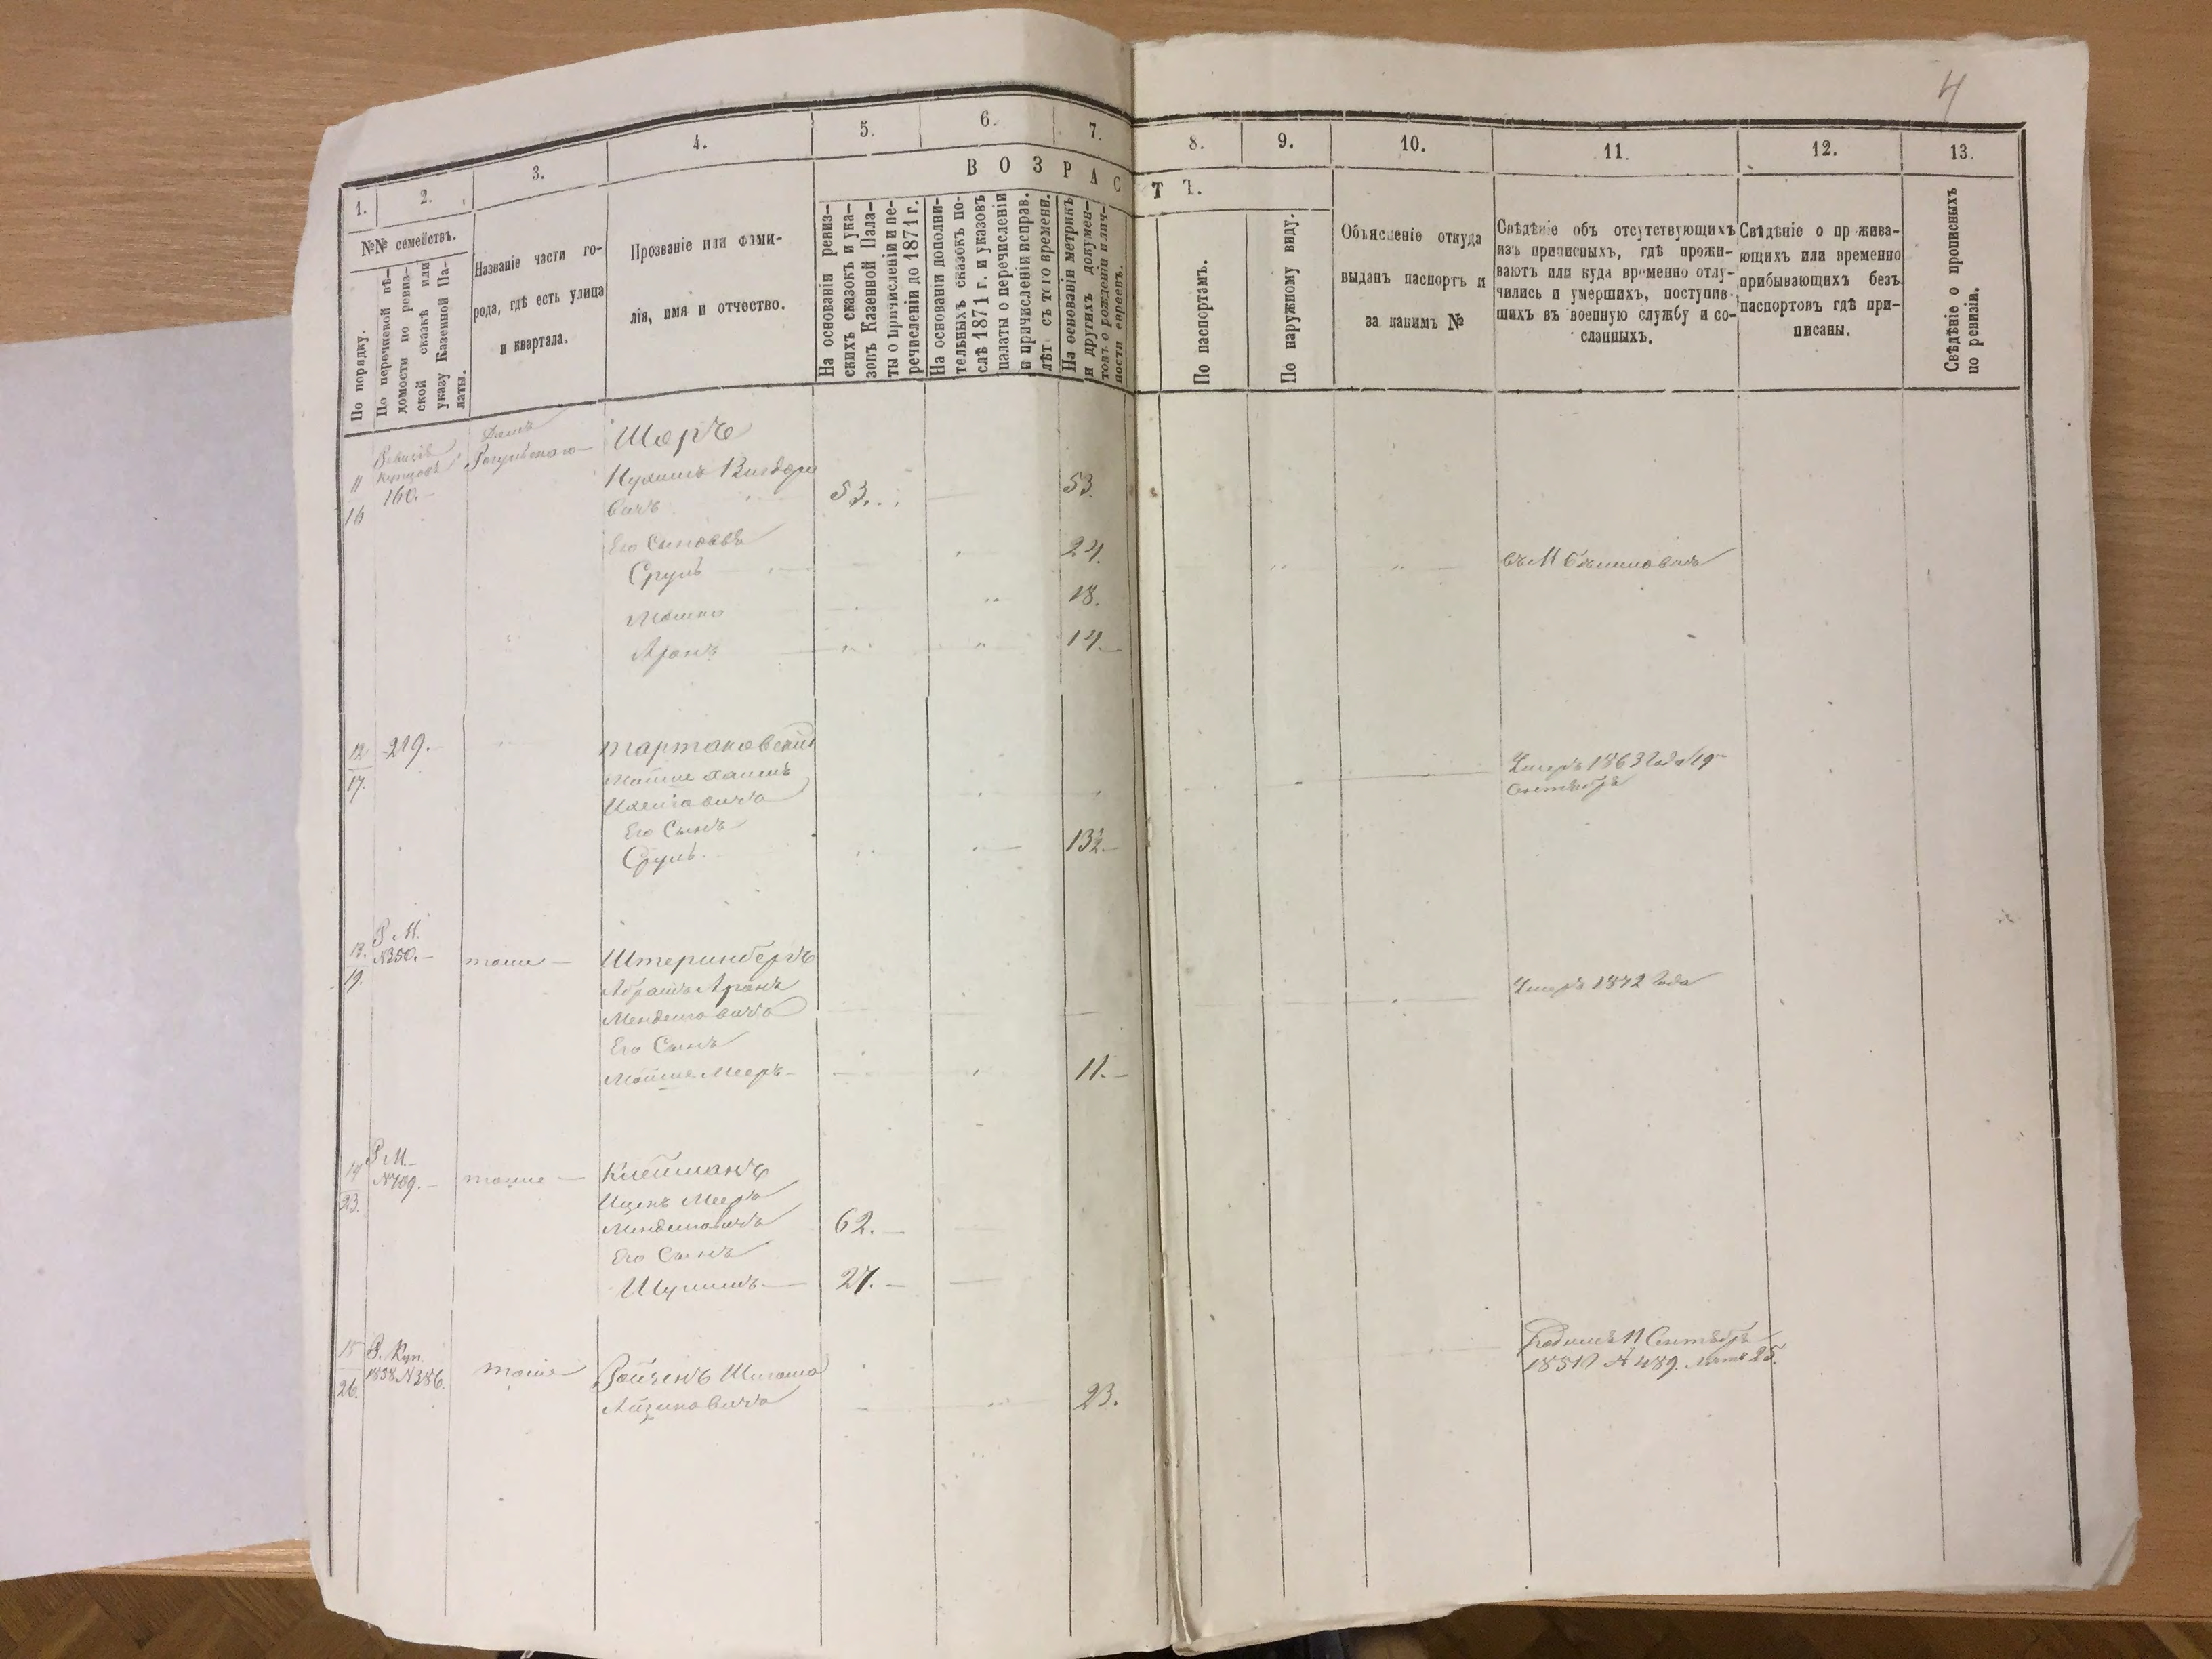 4
1.
2.
3.
4.
5.
6.
7.
8.
9.
10.
11.
12.
13.
ВОЗРАСТЪ.
№№ семействъ.
По порядку.
По перечневой вѣ-
домости по ревиз-
ской сказкѣ или
указу Казенной Па-
латы.
Названіе части го-
рода, гдѣ есть улица
и квартала.
Прозваніе или фами-
лія, имя и отчество.
На основаніи ревиз-
скихъ сказокъ и ука-
зовъ Казенной Пала-
ты о причисленіи и пе-
речисленіи до 1871 г.
На основаніи дополни-
тельныхъ сказокъ по-
слѣ 1871 г. и указовъ
палаты о перечисленіи
и причисленіи исправ.
лѣт съ того времени.
На основаніи метрикъ
и другихъ докумен-
товъ о рожденіи и лич-
ности евреевъ.
По паспортамъ.
По наружному виду.
Объясненіе откуда
выданъ паспортъ и
за какимъ №
Свѣдѣніе объ отсутствующихъ
изъ приписныхъ, гдѣ прожи-
ваютъ или куда временно отлу-
чились и умершихъ, поступив-
шихъ въ военную службу и со-
сланныхъ.
Свѣдѣніе о пр жива-
ющихъ или временно
прибывающихъ безъ
паспортовъ гдѣ при-
писаны.
Свѣдѣніе о прописныхъ
по ревизіи.
11
16
160.-
Домъ
Шоръ
вичъ 53. 53.
Его Сыновья
Сруль 24.
Мошко 18.
Аронъ 14.-
12
17.
219.-
Тартаковскій
Его Сынъ
Сруль. 13½-
Умеръ 1863 года 19
Сентября
13.
19.
Р. М.
№350.-
тоже -
Штеринбергъ
Абрамъ Аронъ
Менделовичъ
Его Сынъ
Мойше Мееръ- 11.-
Умеръ 1872 года
14
23.
Р. М.-
№709.-
тоже -
Клейманъ
Ицекъ Мееръ
Менделовичъ 62.-
Его Сынъ
Шулимъ- 27.-
15
26.
Р. Куп.
1858 №386.
тоже
Ройзенъ
Айзиковичъ 23.
Родился 11 Сентября